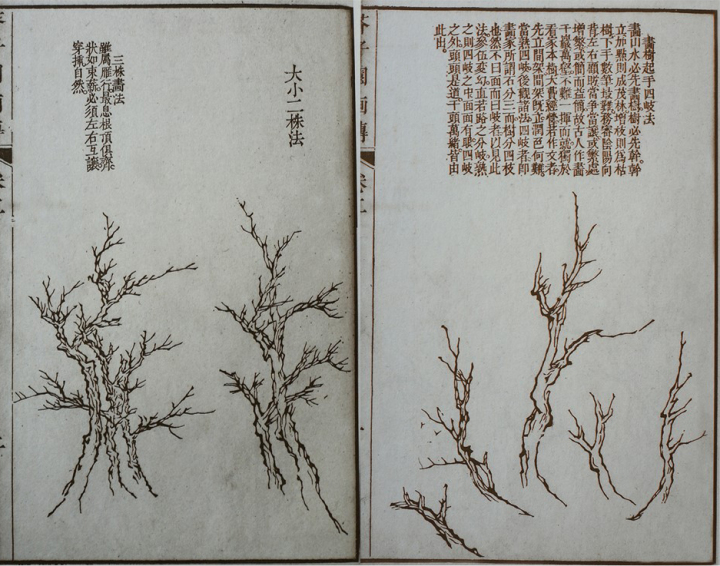 畫樹起手四岐法
畫山水必先畫樹樹必先幹幹
立加點則成茂林增枝則為枯
樹下手數筆最難務審陰陽向
背左右顧盼當爭當讓或繁處
增繁或簡而益簡故古人作畫
千巖萬壑不難一揮而就獨於
看家本樹大費經營若作文者
先立間架間架既立潤色何難
當熟四岐後觀諸法四岐者即
畫家所謂石分三面樹分四枝
也然不曰面而曰岐者以見此
法參伍變幻直若路之分岐熟
之則四岐之中面面有眼四岐
之外頭頭是道千頭萬緒皆由
此出。
大小二株法
三株畫法
雖屬雁行最忌根頂俱齊
狀如束薪必須左右互讓
穿插自然